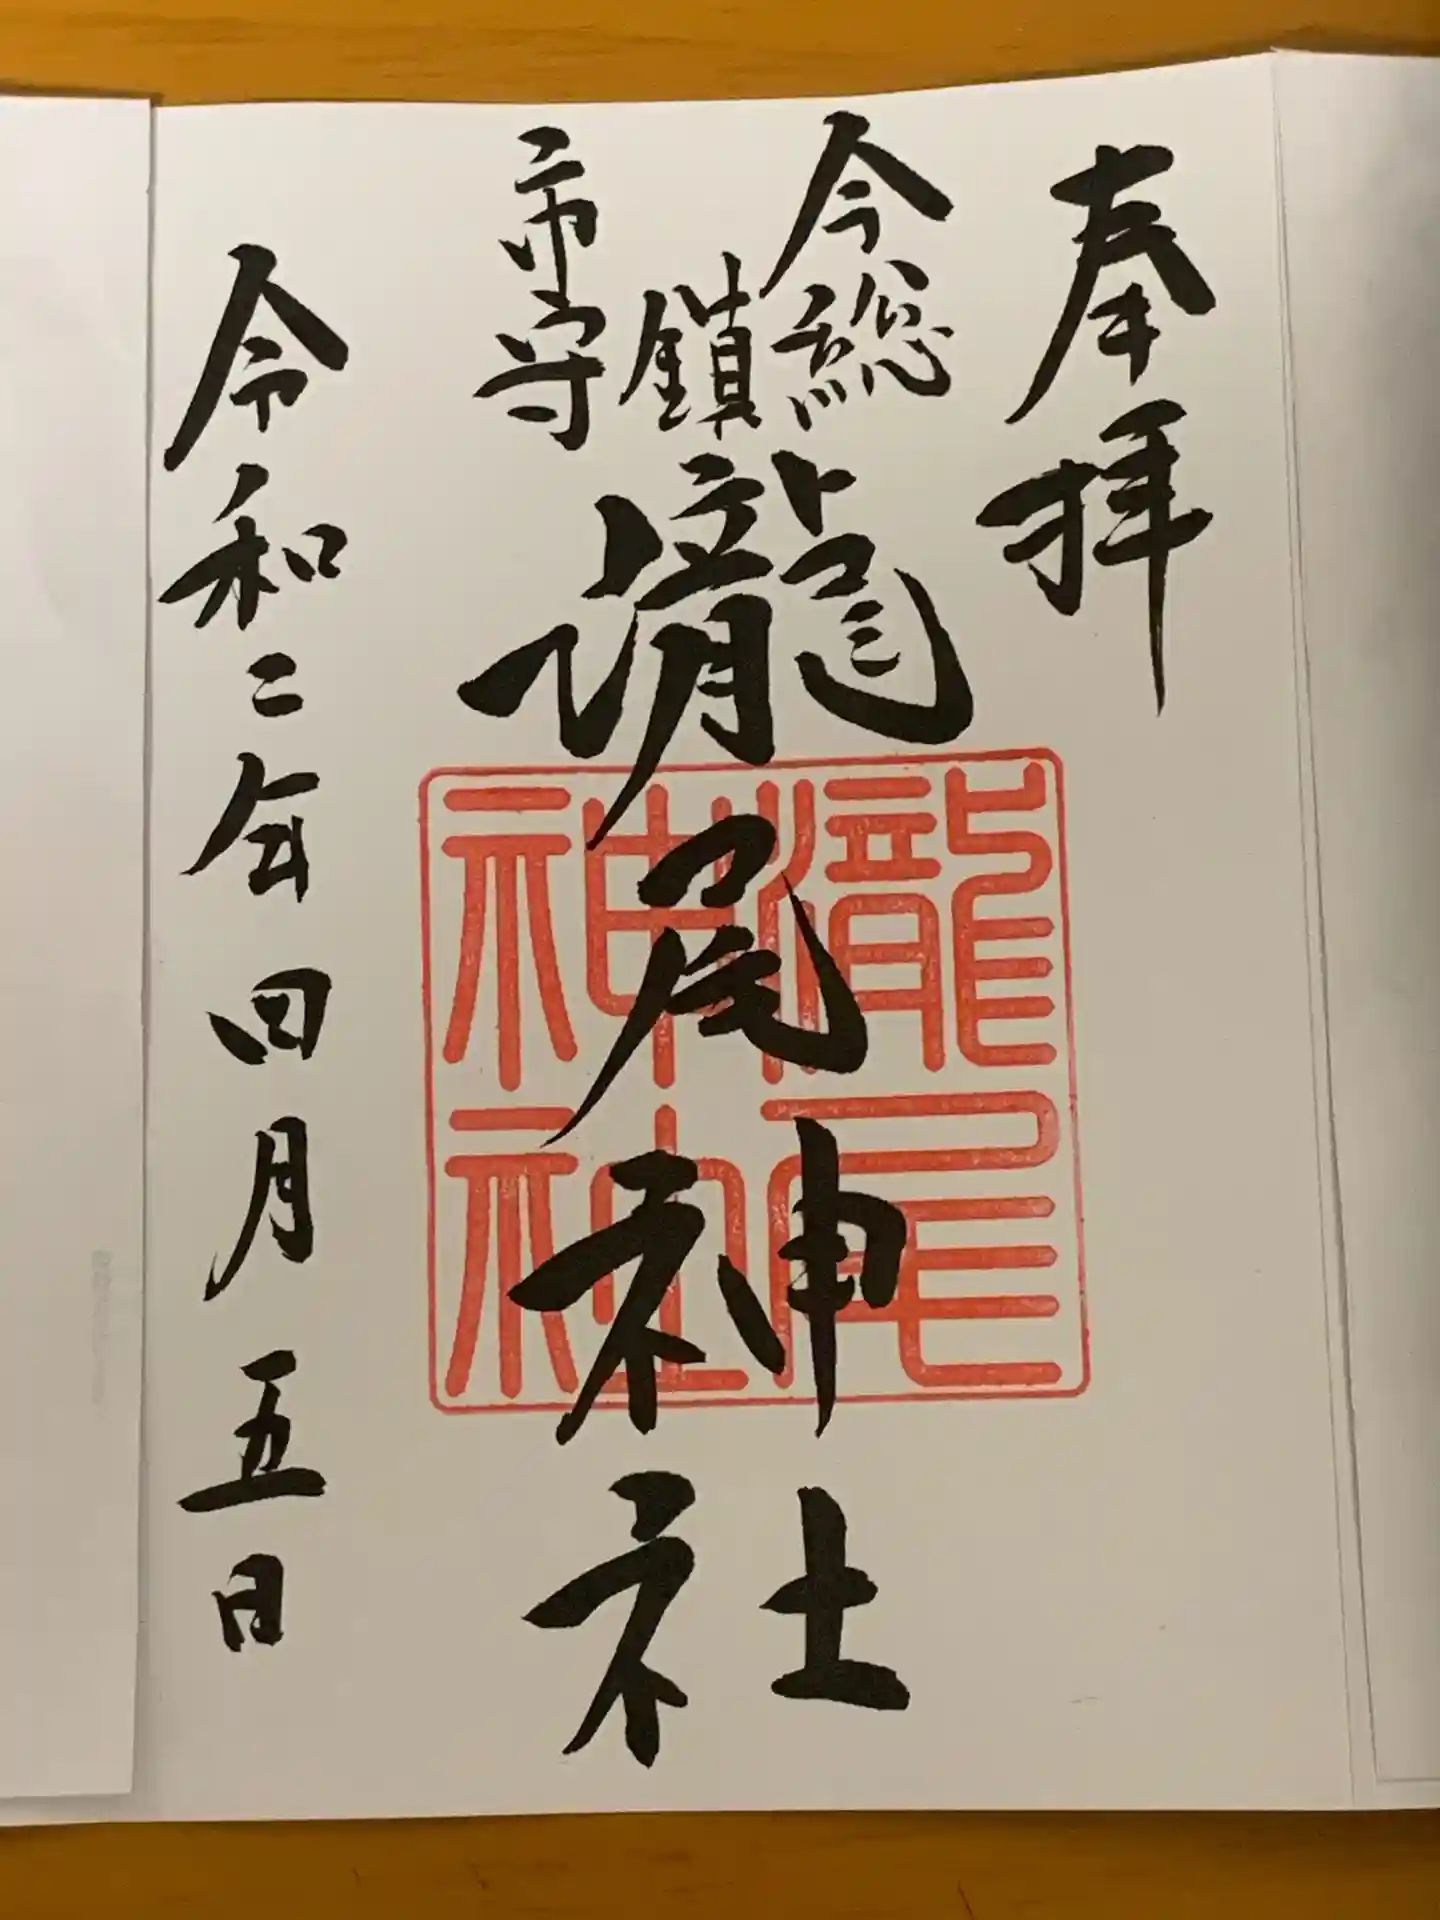 奉拝
今市
総鎮守
瀧尾神社
瀧尾神社
令和二年四月五日